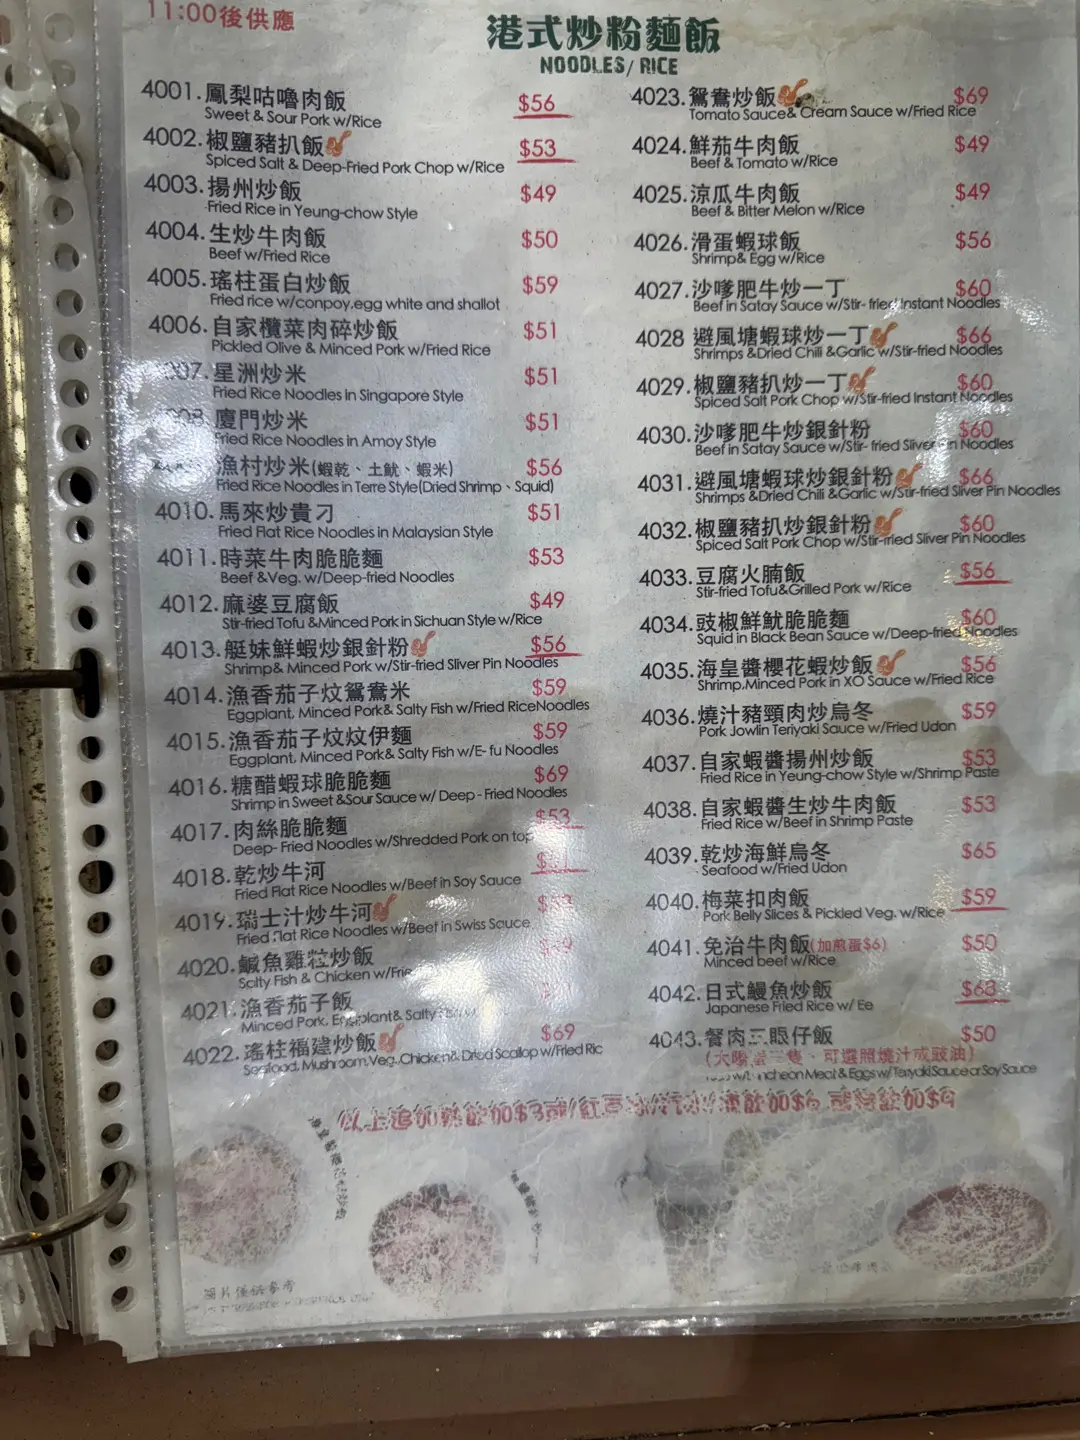 11:00後供應
港式炒粉麵飯
NOODLES/ RICE
4001.鳳梨咕嚕肉飯 $56
Sweet & Sour Pork w/Rice
4002.椒鹽豬扒飯 $53
Spiced Salt & Deep-Fried Pork Chop w/Rice
4003.揚州炒飯 $49
Fried Rice in Yeung-chow Style
4004.生炒牛肉飯 $50
Beef w/Fried Rice
4005.瑤柱蛋白炒飯 $59
Fried rice w/conpoy,egg white and shallot
4006.自家欖菜肉碎炒飯 $51
Pickled Olive & Minced Pork w/Fried Rice
007.星洲炒米 $51
Fried Rice Noodles in Singapore Style
廈門炒米 $51
Fried Rice Noodles in Amoy Style
漁村炒米(蝦乾、土魷、蝦米) $56
Fried Rice Noodles in Terre Style(Dried Shrimp、Squid)
4010.馬來炒貴刁 $51
Fried Flat Rice Noodles in Malaysian Style
4011.時菜牛肉脆脆麵 $53
Beef &Veg. w/Deep-fried Noodles
4012.麻婆豆腐飯 $49
Stir-fried Tofu &Minced Pork in Sichuan Style w/Rice
4013.艇妹鮮蝦炒銀針粉 $56
Shrimp& Minced Pork w/Stir-fried Sliver Pin Noodles
4014.漁香茄子炆鴛鴦米 $59
Eggplant, Minced Pork& Salty Fish w/Fried RiceNoodles
4015.漁香茄子炆炆伊麵 $59
Eggplant, Minced Pork& Salty Fish w/E- fu Noodles
4016.糖醋蝦球脆脆麵 $69
Shrimp in Sweet &Sour Sauce w/ Deep - Fried Noodles
4017.肉絲脆脆麵 $53
Deep- Fried Noodles w/Shredded Pork on top
4018.乾炒牛河
Fried Flat Rice Noodles w/Beef in Soy Sauce
4019.瑞士汁炒牛河
Fried Flat Rice Noodles w/Beef in Swiss Sauce
4020.鹹魚雞粒炒飯
Salty Fish & Chicken w/Frie
4021.漁香茄子飯
Minced Pork, Eggplant& Salty
4022.瑤柱福建炒飯 $69
Seafood, Mushroom,Veg.,Chicken& Dried Scallop w/Fried Ric
4023.鴛鴦炒飯 $69
Tomato Sauce& Cream Sauce w/Fried Rice
4024.鮮茄牛肉飯 $49
Beef & Tomato w/Rice
4025.涼瓜牛肉飯 $49
Beef & Bitter Melon w/Rice
4026.滑蛋蝦球飯 $56
Shrimp& Egg w/Rice
4027.沙嗲肥牛炒一丁 $60
Beef in Satay Sauce w/Stir- fried Instant Noodles
4028 避風塘蝦球炒一丁 $66
Shrimps &Dried Chili &Garlic w/Stir-fried Noodles
4029.椒鹽豬扒炒一丁 $60
Spiced Salt Pork Chop w/Stir-fried Instant Noodles
4030.沙嗲肥牛炒銀針粉 $60
Beef in Satay Sauce w/Stir- fried Sliver Pin Noodles
4031.避風塘蝦球炒銀針粉 $66
Shrimps &Dried Chili &Garlic w/Stir-fried Sliver Pin Noodles
4032.椒鹽豬扒炒銀針粉 $60
Spiced Salt Pork Chop w/Stir-fried Sliver Pin Noodles
4033.豆腐火腩飯 $56
Stir-fried Tofu&Grilled Pork w/Rice
4034.豉椒鮮魷脆脆麵 $60
Squid in Black Bean Sauce w/Deep-fried Noodles
4035.海皇醬櫻花蝦炒飯 $56
Shrimp,Minced Pork in XO Sauce w/Fried Rice
4036.燒汁豬頸肉炒烏冬 $59
Pork Jowlin Teriyaki Sauce w/Fried Udon
4037.自家蝦醬揚州炒飯 $53
Fried Rice in Yeung-chow Style w/Shrimp Paste
4038.自家蝦醬生炒牛肉飯 $53
Fried Rice w/Beef in Shrimp Paste
4039.乾炒海鮮烏冬 $65
Seafood w/Fried Udon
4040.梅菜扣肉飯 $59
Pork Belly Slices & Pickled Veg. w/Rice
4041.免治牛肉飯(加煎蛋$6) $50
Minced beef w/Rice
4042.日式鰻魚炒飯 $68
Japanese Fried Rice w/ Ee
4043.餐肉三眼仔飯 $50
、可選照燒汁或豉油)
ncheon Meat & Eggs w/TeriyakiSauce or Soy Sauce
以上追加熱飲加$3 凍飲加$6 飲加$9
圖片僅供參考